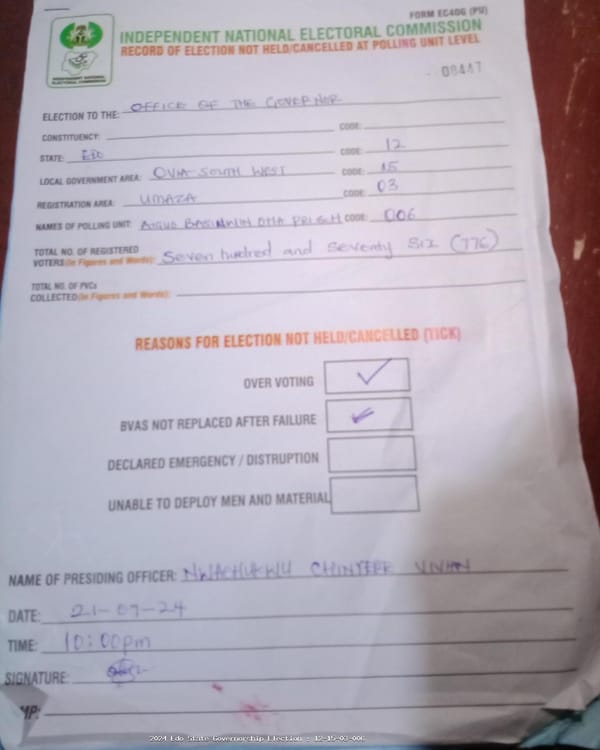 FORM EC40G (PU)
INDEPENDENT NATIONAL ELECTORAL COMMISSION
RECORD OF ELECTION NOT HELD/CANCELLED AT POLLING UNIT LEVEL
INDEPENDENT NATIONAL ELECTORAL COMMISSION
08447
ELECTION TO THE: OFFICE OF THE GOVERNOR
CONSTITUENCY: CODE:
STATE: EDO CODE: 12
LOCAL GOVERNMENT AREA: OVIA SOUTH WEST CODE: 15
REGISTRATION AREA: UMAZA CODE: 03
NAMES OF POLLING UNIT: CODE: 006
TOTAL NO. OF REGISTERED
VOTERS (in Figures and Words): Seven hudred and seventy six (776)
TOTAL NO. OF PVCs
COLLECTED (in Figures and Words):
REASONS FOR ELECTION NOT HELD/CANCELLED (TICK)
OVER VOTING ✓
BVAS NOT REPLACED AFTER FAILURE ✓
DECLARED EMERGENCY / DISTRUPTION
UNABLE TO DEPLOY MEN AND MATERIAL
NAME OF PRESIDING OFFICER: NWACHUKWU CHINYERE VIVIAN
DATE: 21-09-24
TIME: 10:00pm
SIGNATURE:
MP:
2024 Edo State Governorship Election : 12-15-03-006